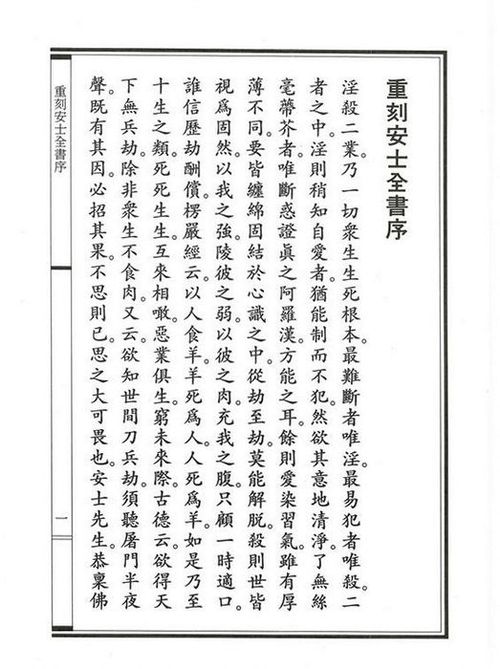 重刻安士全書序
淫殺二業。乃一切衆生生死根本。最難斷者唯淫。最易犯者唯殺。二
者之中。淫則稍知自愛者。猶能制而不犯。然欲其意地清淨。了無絲
毫蔕芥者。唯斷惑證眞之阿羅漢。方能之耳。餘則愛染習氣。雖有厚
薄不同。要皆纏綿固結於心識之中。從劫至劫。莫能解脫。殺則世皆
視爲固然。以我之強。陵彼之弱。以彼之肉。充我之腹。只顧一時適口。
誰信歷劫酬償。楞嚴經云。以人食羊。羊死爲人。人死爲羊。如是乃至
十生之類。死死生生。互來相噉。惡業俱生。窮未來際。古德云。欲得天
下無兵劫。除非衆生不食肉。又云。欲知世間刀兵劫。須聽屠門半夜
聲。既有其因。必招其果。不思則已。思之大可畏也。安士先生。恭稟佛
重刻安士全書序
一